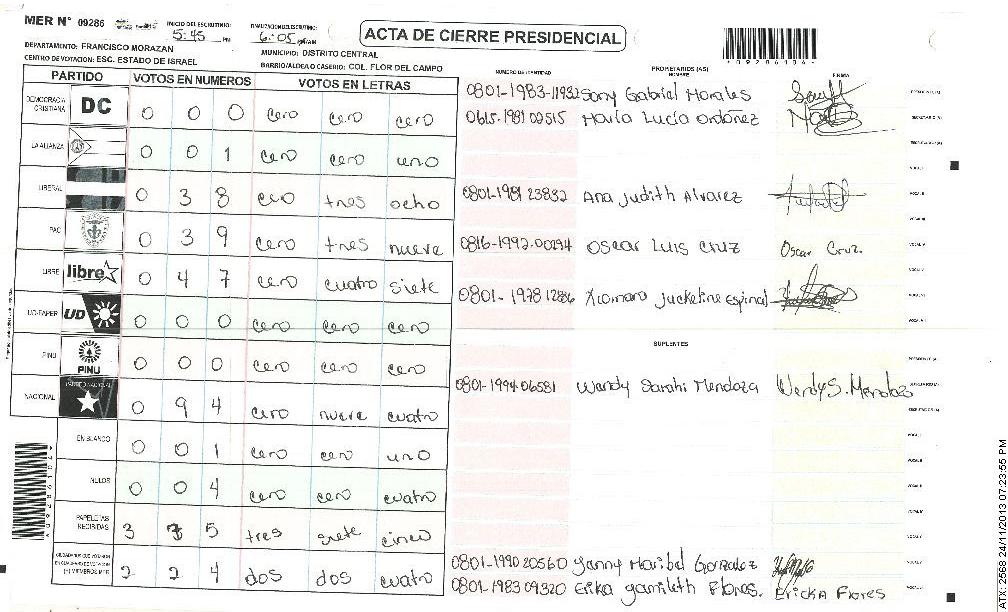 MER N° 09286
INICIO DEL ESCRUTINIO:
5:45 PM
FINALIZACION ESCRUTINIO:
6:05 PM/AM
ACTA DE CIERRE PRESIDENCIAL
DEPARTAMENTO: FRANCISCO MORAZAN
MUNICIPIO: DISTRITO CENTRAL
CENTRO DE VOTACION: ESC. ESTADO DE ISRAEL
BARRIO/ALDEA O CASERIO: COL. FLOR DEL CAMPO
PARTIDO VOTOS EN NUMEROS VOTOS EN LETRAS
DEMOCRACIA CRISTIANA DC 0 0 0 cero cero cero
LA ALIANZA 0 0 1 cero cero uno
LIBERAL 0 3 8 cero tres ocho
PAC 0 3 9 cero tres nueve
LIBRE libre 0 4 7 cero cuatro siete
UD-FAPER UD 0 0 0 cero cero cero
PINU PINU 0 0 0 cero cero cero
NACIONAL PARTIDO NACIONAL 0 9 4 cero nueve cuatro
EN BLANCO 0 0 1 cero cero uno
NULOS 0 0 4 cero cero cuatro
PAPELETAS RECIBIDAS 3 7 5 tres siete cinco
2 2 4 dos dos cuatro
NUMERO DE IDENTIDAD PROPIETARIOS (AS) NOMBRE FIRMA
0801-1983-11932 Sony Gabriel Morales
0615-1981 02515 María Lucía Ordoñez
0801-1981 23832 Ana Judith Alvarez
0816-1992-00294 Oscar Luis Cruz Oscar Cruz.
0801-1978 12886 Xiomara Jackeline Espinal
SUPLENTES
0801-1994-06581 Wendy Sarahi Mendoza Wendy S. Mendoza
0801-1990 20560 Yanny Maribel Gonzalez
0801-1983 09320 Erika Yamileth Flores. Ericka Flores
ATX-2568 24/11/2013 07:23:55 PM